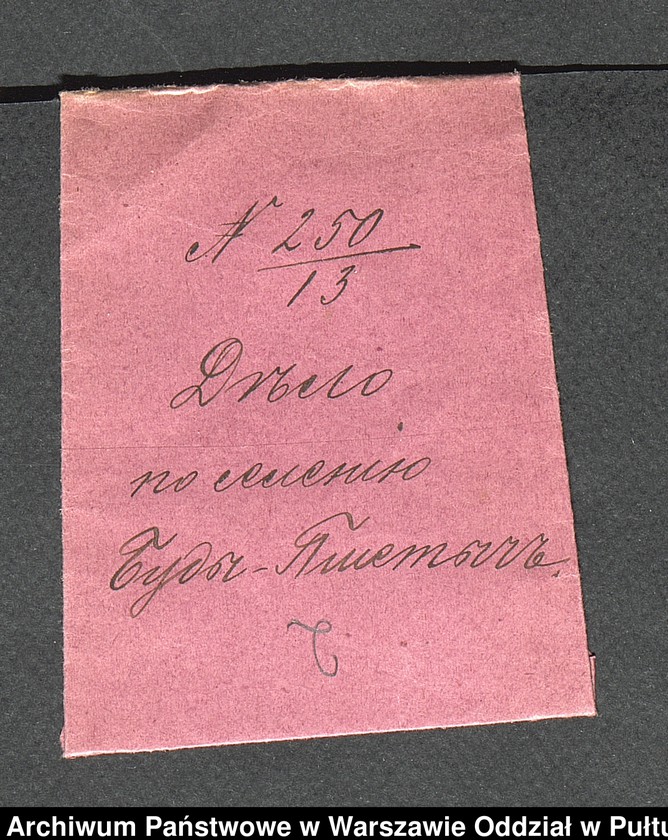 N 250
13
Дѣло
по селенію
Буды-Пшетычъ.
Archiwum Państwowe w Warszawie Oddział w Pułtu